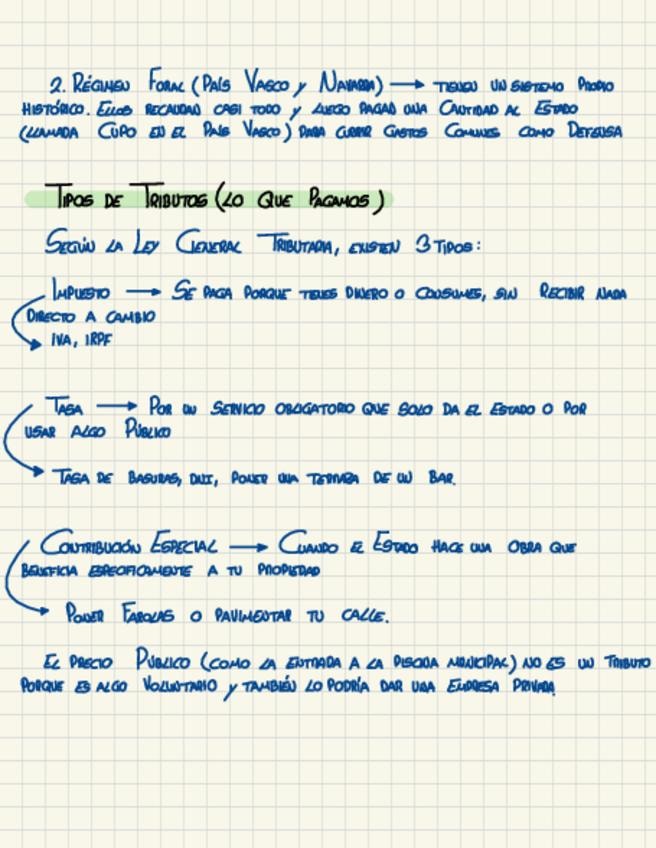 2. Régimen Foral (País Vasco y Navarra) → tienen un sistema propio
histórico. Ellos recaudan casi todo y luego pagan una cantidad al Estado
(llamada Cupo en el País Vasco) para cubrir gastos comunes como Defensa
Tipos de Tributos (lo que pagamos)
Según la Ley General Tributaria, existen 3 tipos:
Impuesto → Se paga porque tienes dinero o consumes, sin recibir nada
directo a cambio
→ IVA, IRPF
Tasa → Por un servicio obligatorio que solo da el Estado o por
usar algo público
→ Tasa de basuras, DNI, poner una terraza de un bar.
Contribución Especial → Cuando el Estado hace una obra que
beneficia específicamente a tu propiedad
→ Poner farolas o pavimentar tu calle.
El precio público (como la entrada a la piscina municipal) no es un tributo
porque es algo voluntario y también lo podría dar una empresa privada.